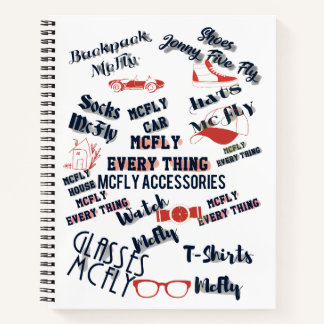 Backpack
McFly
Shoes
Jonny Five Fly
Socks
McFly
MCFLY
CAR
hats
McFly
MCFLY
EVERY THING
MCFLY
EVERY THING
MCFLY
HOUSE
MCFLY ACCESSORIES
MCFLY
EVERY THING
Watch
McFly
MCFLY
EVERY THING
GLASSES
MCFLY
T-Shirts
McFly